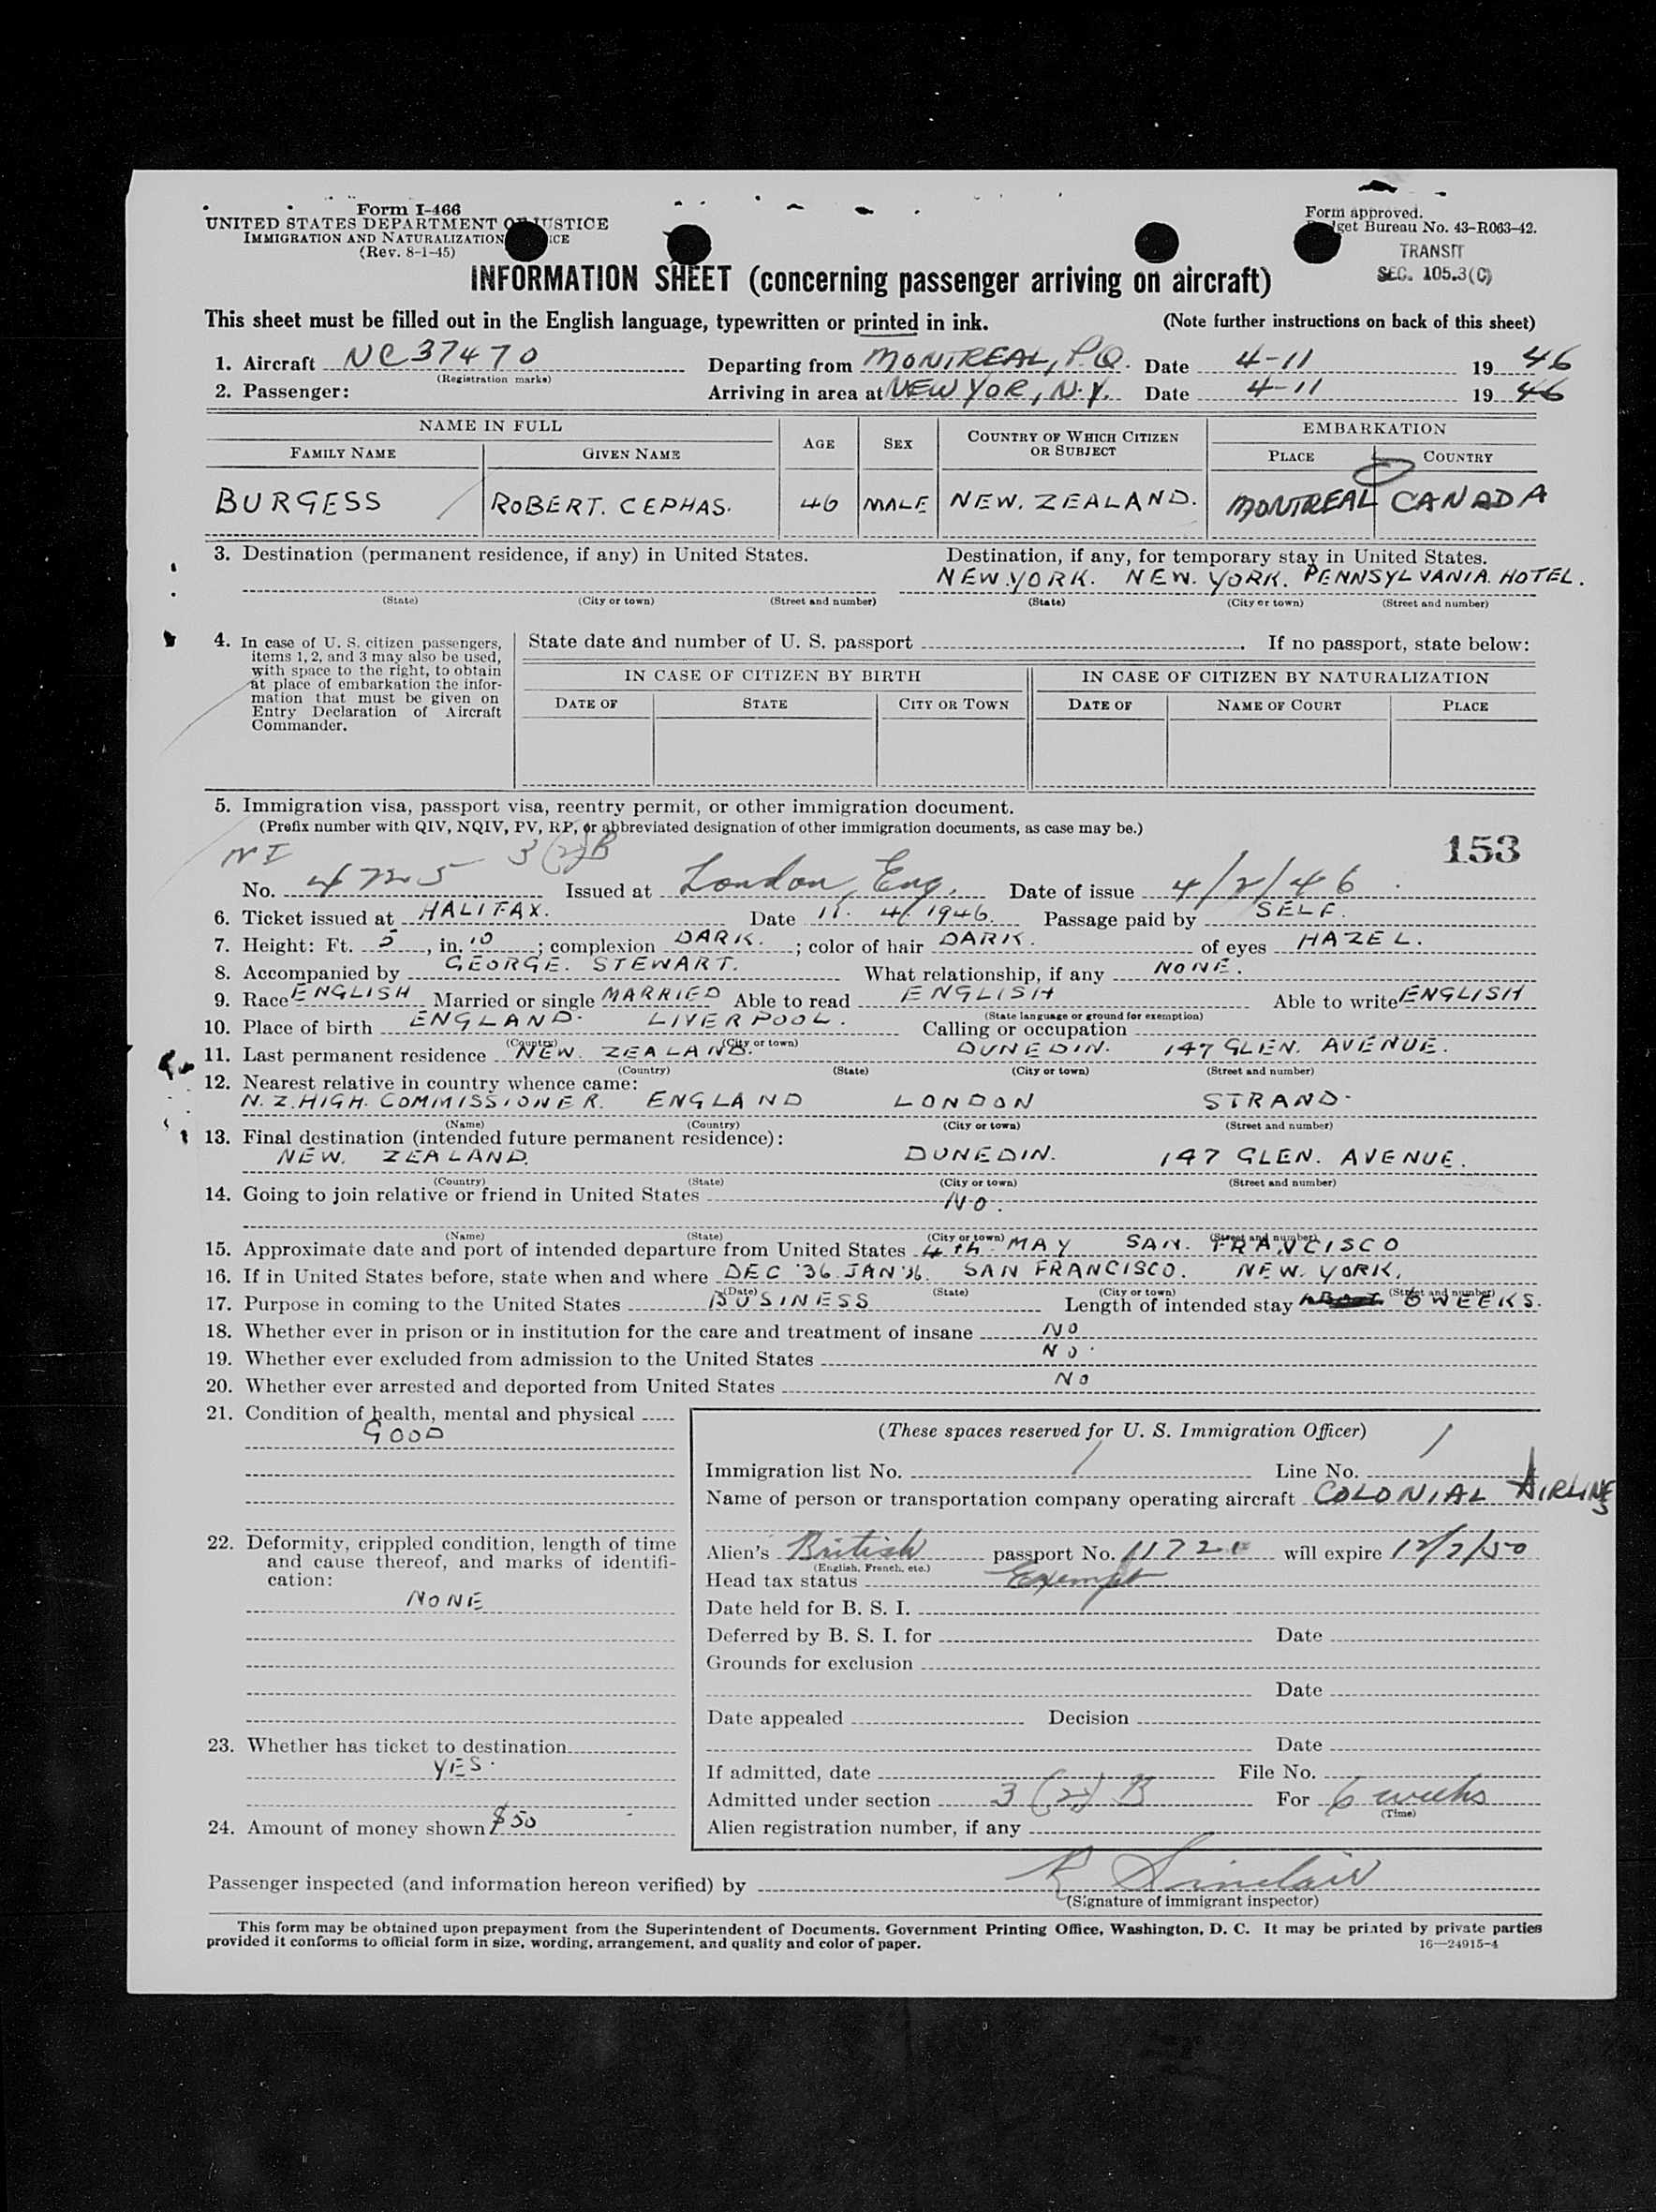 Form I-466
UNITED STATES DEPARTMENT OF JUSTICE
IMMIGRATION AND NATURALIZATION ICE
(Rev. 8-1-45)
Form approved.
get Bureau No. 43-R063-42.
TRANSIT
SEC. 105.3(C)
INFORMATION SHEET (concerning passenger arriving on aircraft)
This sheet must be filled out in the English language, typewritten or printed in ink. (Note further instructions on back of this sheet)
1. Aircraft NC37470 Departing from MONTREAL, P.Q. Date 4-11 1946
(Registration marks)
2. Passenger: Arriving in area at NEW YOR, N.Y. Date 4-11 1946
NAME IN FULL AGE SEX COUNTRY OF WHICH CITIZEN OR SUBJECT EMBARKATION
FAMILY NAME GIVEN NAME PLACE COUNTRY
BURGESS ROBERT. CEPHAS. 46 MALE NEW. ZEALAND. MONTREAL CANADA
3. Destination (permanent residence, if any) in United States. Destination, if any, for temporary stay in United States.
NEW.YORK. NEW. YORK. PENNSYLVANIA. HOTEL.
(State) (City or town) (Street and number) (State) (City or town) (Street and number)
4. In case of U. S. citizen passengers, items 1, 2, and 3 may also be used, with space to the right, to obtain at place of embarkation the information that must be given on Entry Declaration of Aircraft Commander.
State date and number of U. S. passport . If no passport, state below:
IN CASE OF CITIZEN BY BIRTH IN CASE OF CITIZEN BY NATURALIZATION
DATE OF STATE CITY OR TOWN DATE OF NAME OF COURT PLACE
5. Immigration visa, passport visa, reentry permit, or other immigration document.
(Prefix number with QIV, NQIV, PV, RP, or abbreviated designation of other immigration documents, as case may be.)
153
NI 3(2)B
No. 4725 Issued at London, Eng. Date of issue 4/2/46
6. Ticket issued at HALIFAX. Date 11. 4. 1946. Passage paid by SELF.
7. Height: Ft. 5, in. 10; complexion DARK.; color of hair DARK. of eyes HAZEL.
8. Accompanied by GEORGE. STEWART. What relationship, if any NONE.
9. Race ENGLISH Married or single MARRIED Able to read ENGLISH Able to write ENGLISH
(State language or ground for exemption)
10. Place of birth ENGLAND. LIVERPOOL. Calling or occupation
(Country) (City or town)
11. Last permanent residence NEW. ZEALAND. DUNEDIN. 147 GLEN. AVENUE.
(Country) (State) (City or town) (Street and number)
12. Nearest relative in country whence came:
N.Z.HIGH. COMMISSIONER. ENGLAND LONDON STRAND.
(Name) (Country) (City or town) (Street and number)
13. Final destination (intended future permanent residence):
NEW. ZEALAND. DUNEDIN. 147 GLEN. AVENUE.
(Country) (State) (City or town) (Street and number)
14. Going to join relative or friend in United States NO.
(Name) (State) (City or town) (Street and number)
15. Approximate date and port of intended departure from United States 4th. MAY SAN. FRANCISCO
16. If in United States before, state when and where DEC '36. JAN '36. SAN FRANCISCO. NEW. YORK.
(Date) (State) (City or town) (Street and number)
17. Purpose in coming to the United States BUSINESS Length of intended stay 6 WEEKS.
18. Whether ever in prison or in institution for the care and treatment of insane NO
19. Whether ever excluded from admission to the United States NO.
20. Whether ever arrested and deported from United States NO
21. Condition of health, mental and physical
GOOD
22. Deformity, crippled condition, length of time and cause thereof, and marks of identification:
NONE
23. Whether has ticket to destination
YES.
24. Amount of money shown $50
(These spaces reserved for U. S. Immigration Officer)
Immigration list No. 1 Line No. 1
Name of person or transportation company operating aircraft COLONIAL AIRLINES
Alien's British passport No. 11721 will expire 12/2/50
(English, French, etc.)
Head tax status Exempt
Date held for B. S. I.
Deferred by B. S. I. for Date
Grounds for exclusion
Date
Date appealed Decision
Date
If admitted, date File No.
Admitted under section 3 (2) B For 6 weeks
(Time)
Alien registration number, if any
Passenger inspected (and information hereon verified) by R Sinclair
(Signature of immigrant inspector)
This form may be obtained upon prepayment from the Superintendent of Documents, Government Printing Office, Washington, D. C. It may be printed by private parties
provided it conforms to official form in size, wording, arrangement, and quality and color of paper. 16—24915-4